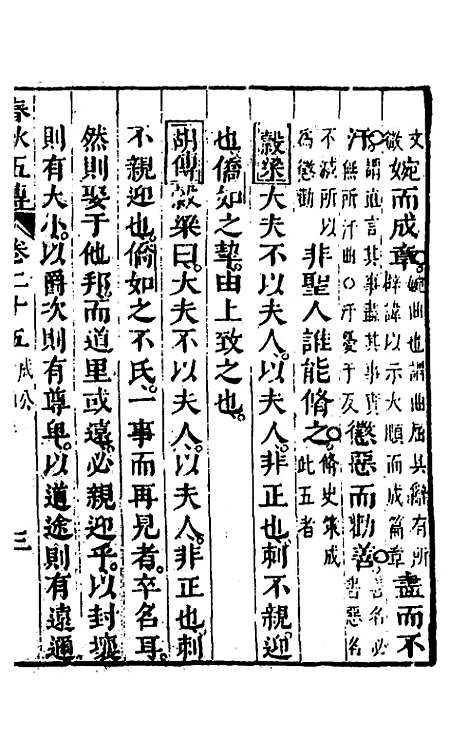 文微婉而成章。婉曲也謂曲屈其辭有所辟諱以示大順而成篇章盡而不
汙。謂直言其事盡其事實無所汙曲○汙憂于反懲惡而勸善。善名必書惡名
不滅所以為懲勸非聖人誰能脩之。脩史策成此五者
穀梁大夫不以夫人。以夫人。非正也。刺不親迎
也。僑如之摯。由上致之也。
胡傳穀梁曰。大夫不以夫人。以夫人。非正也。刺
不親迎也。僑如之不氏。一事而再見者。卒名耳。
然則娶于他邦。而道里或遠。必親迎乎。以封壤
則有大小。以爵次則有尊卑。以道途則有遠邇
春秋五傳 卷二十五 成公 三